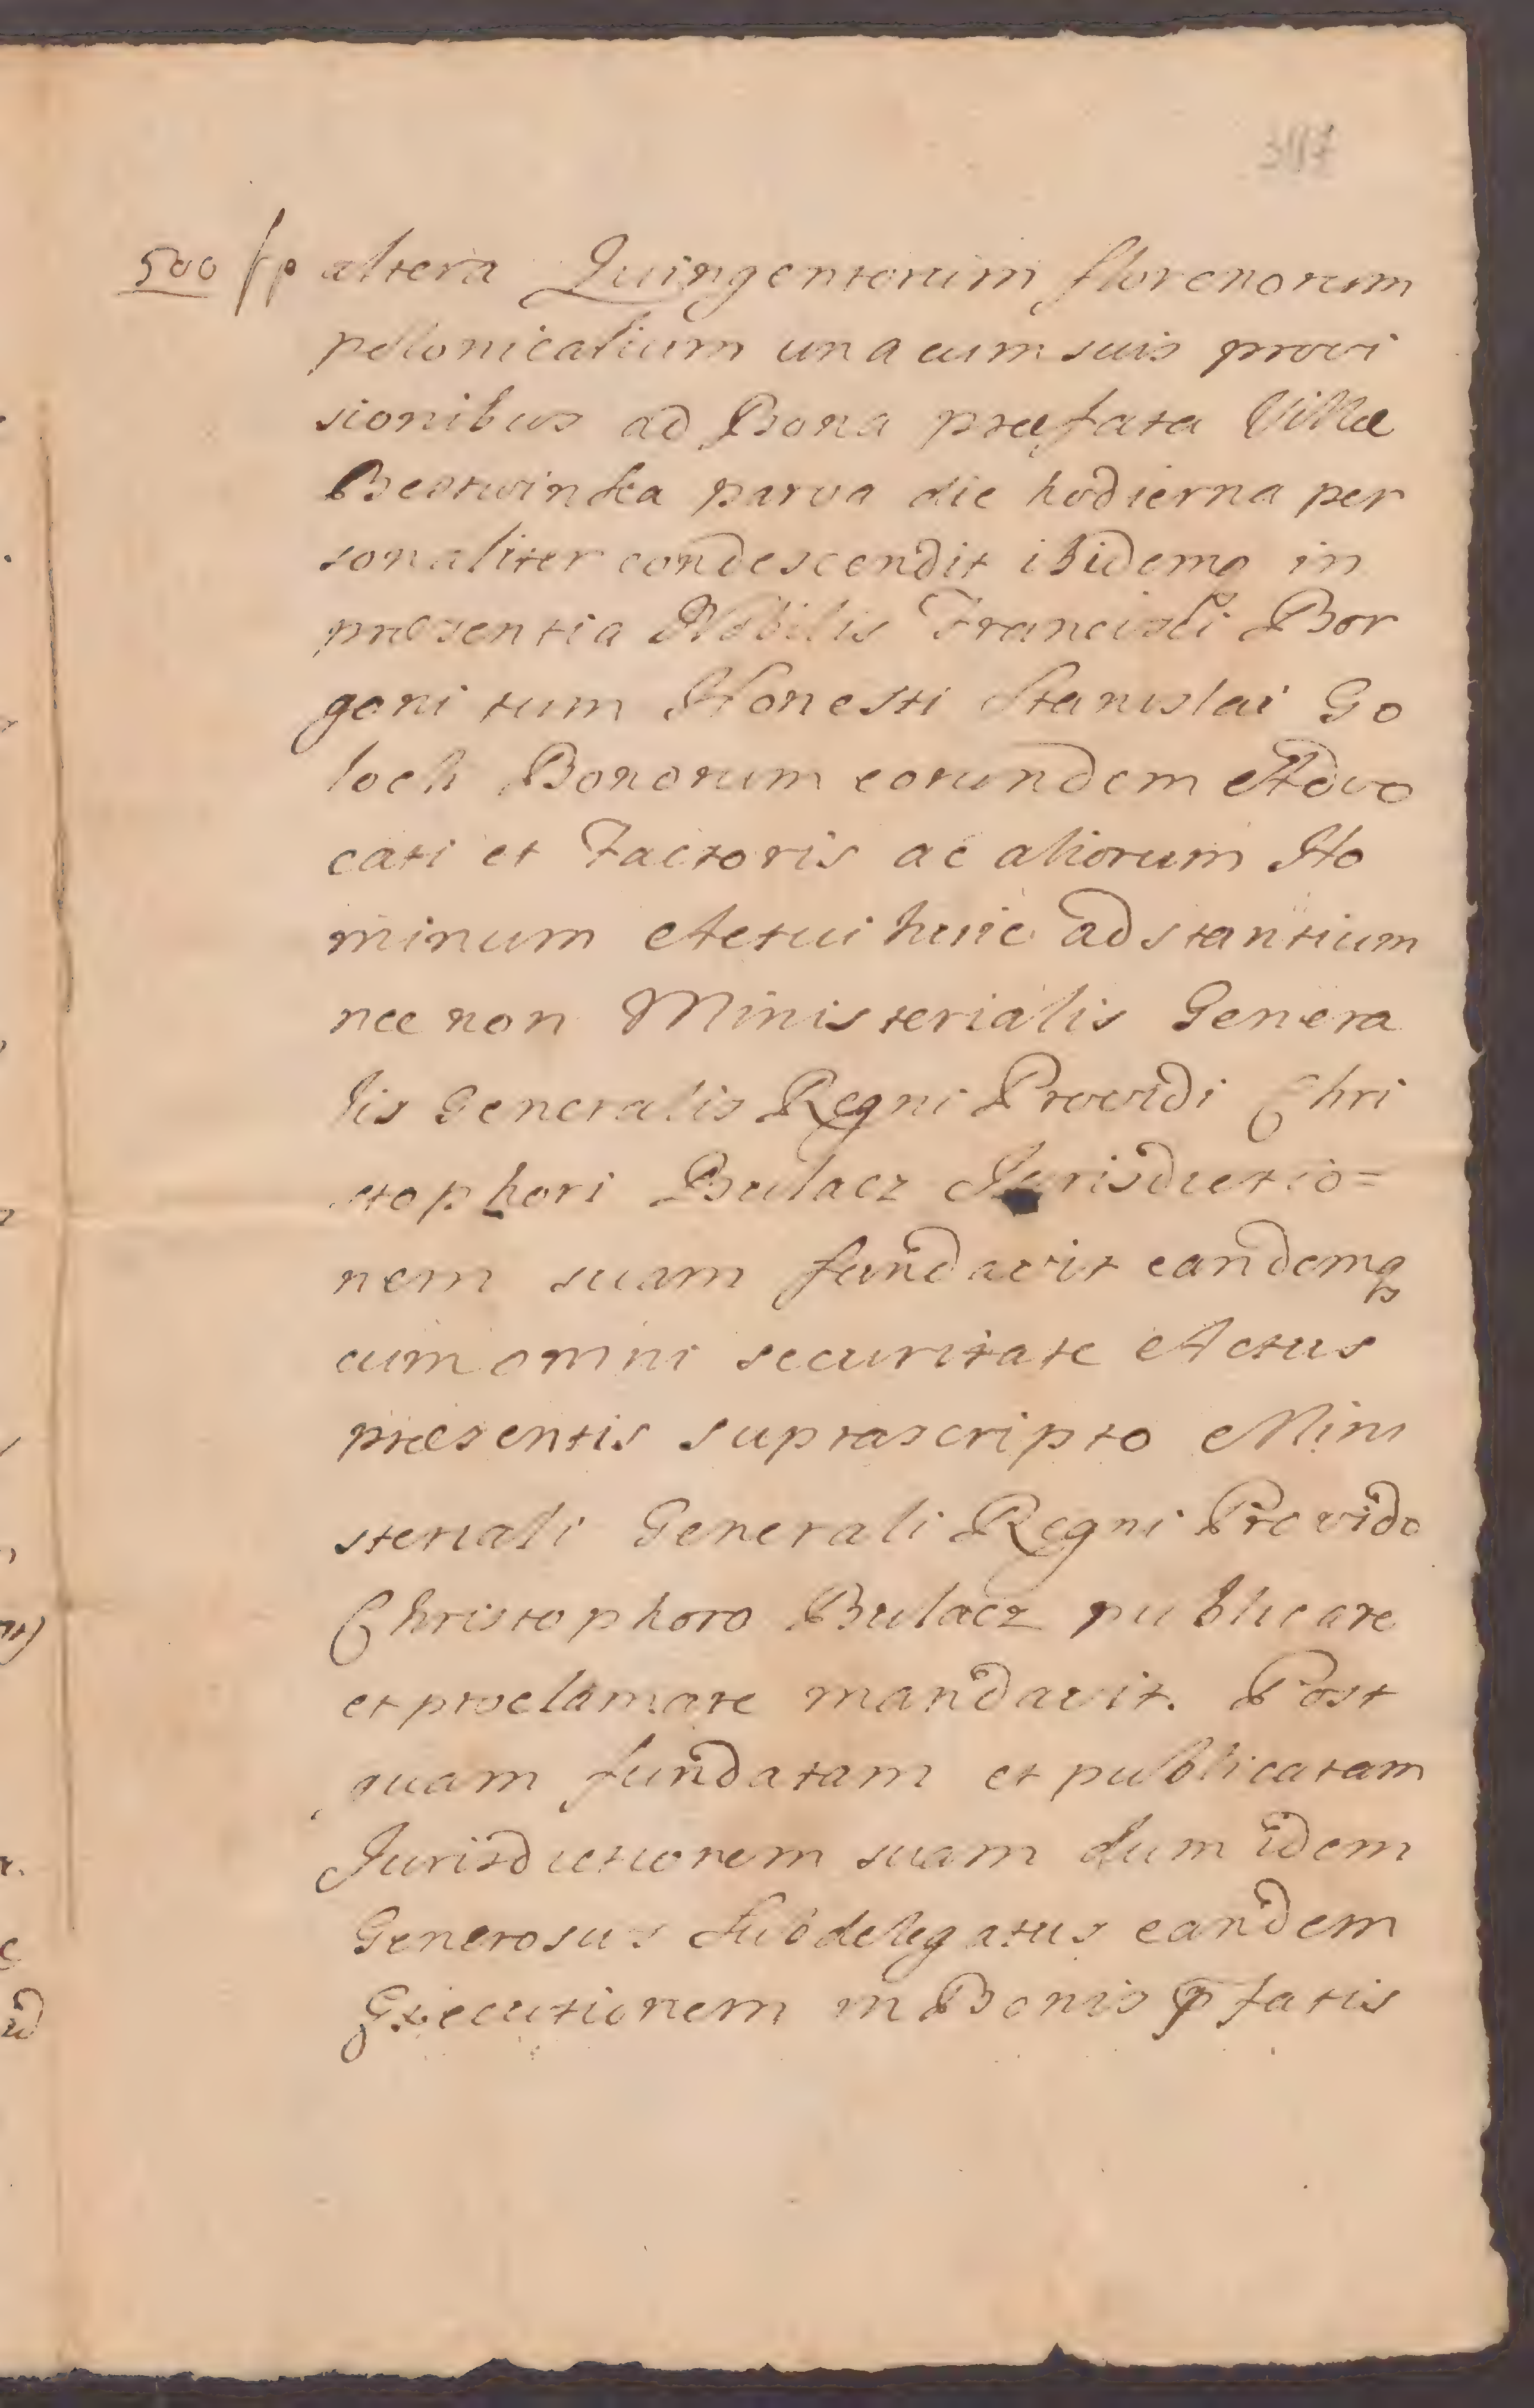 500 fp altera Quingentorum florenorum
pollonicalium una cum suis provi
sionibus ad Bona præfata Villæ
Bestwinka parva die hodierna per
sonaliter condescendit ibidemq in
præsentia Nobilis Francisci Bor
goni tum Honesti Stanislai Go
loch Bonorum eorundem Advo
cati et Factoris ac aliorum Ho
minum Actui huic adstantium
nec non Ministerialis Genera
lis Generalis Regni Providi Chri
stophori Bulacz Jurisdictio=
nem suam fundavit eandemq
cum omni securitate Actus
præsentis suprascripto Mini
steriali Generali Regni Provido
Christophoro Bulacz publicare
et proclamare mandavit. Post
quam fundatam et publicatam
Jurisdictionem suam dum idem
Generosus Subdelegatus eandem
Executionem in Bonis p̄fatis